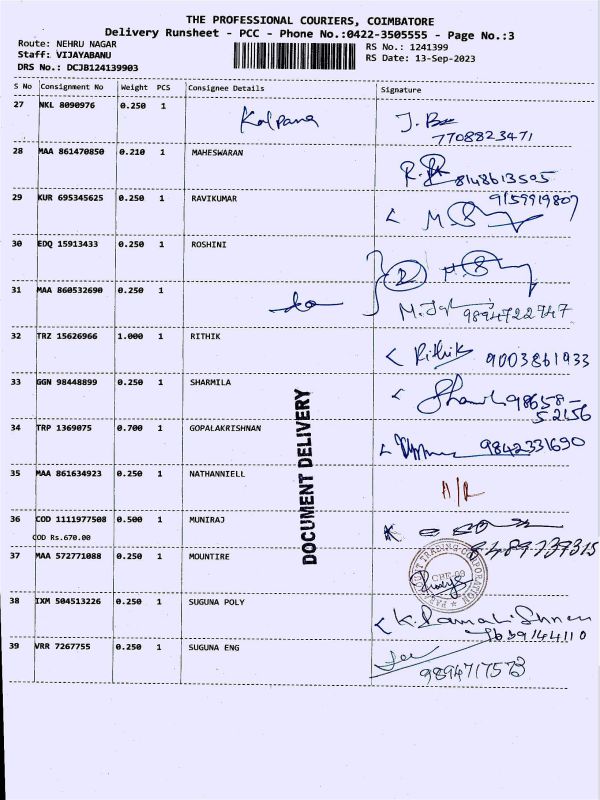 THE PROFESSIONAL COURIERS, COIMBATORE
Delivery Runsheet - PCC - Phone No.:0422-3505555 - Page No.:3
Route: NEHRU NAGAR
RS No.: 1241399
Staff: VIJAYABANU
RS Date: 13-Sep-2023
DRS No.: DCJB124139903
S No Consignment No Weight PCS Consignee Details Signature
27 NKL 8090976 0.250 1 Kalpana
7708823471
28 MAA 861470850 0.210 1 MAHESWARAN
8148613505
29 KUR 695345625 0.250 1 RAVIKUMAR 9159919807
30 EDQ 15913433 0.250 1 ROSHINI
31 MAA 860532690 0.250 1
9894722747
32 TRZ 15626966 1.000 1 RITHIK Rithik 9003861933
33 GGN 98448899 0.250 1 SHARMILA 98658-
52156
34 TRP 1369075 0.700 1 GOPALAKRISHNAN 9842331690
DOCUMENT DELIVERY
35 MAA 861634923 0.250 1 NATHANNIELL
36 COD 1111977508 0.500 1 MUNIRAJ
COD Rs.670.00
8489739315
37 MAA 572771088 0.250 1 MOUNTIRE
38 IXM 504513226 0.250 1 SUGUNA POLY
9659144110
39 VRR 7267755 0.250 1 SUGUNA ENG
9894717573